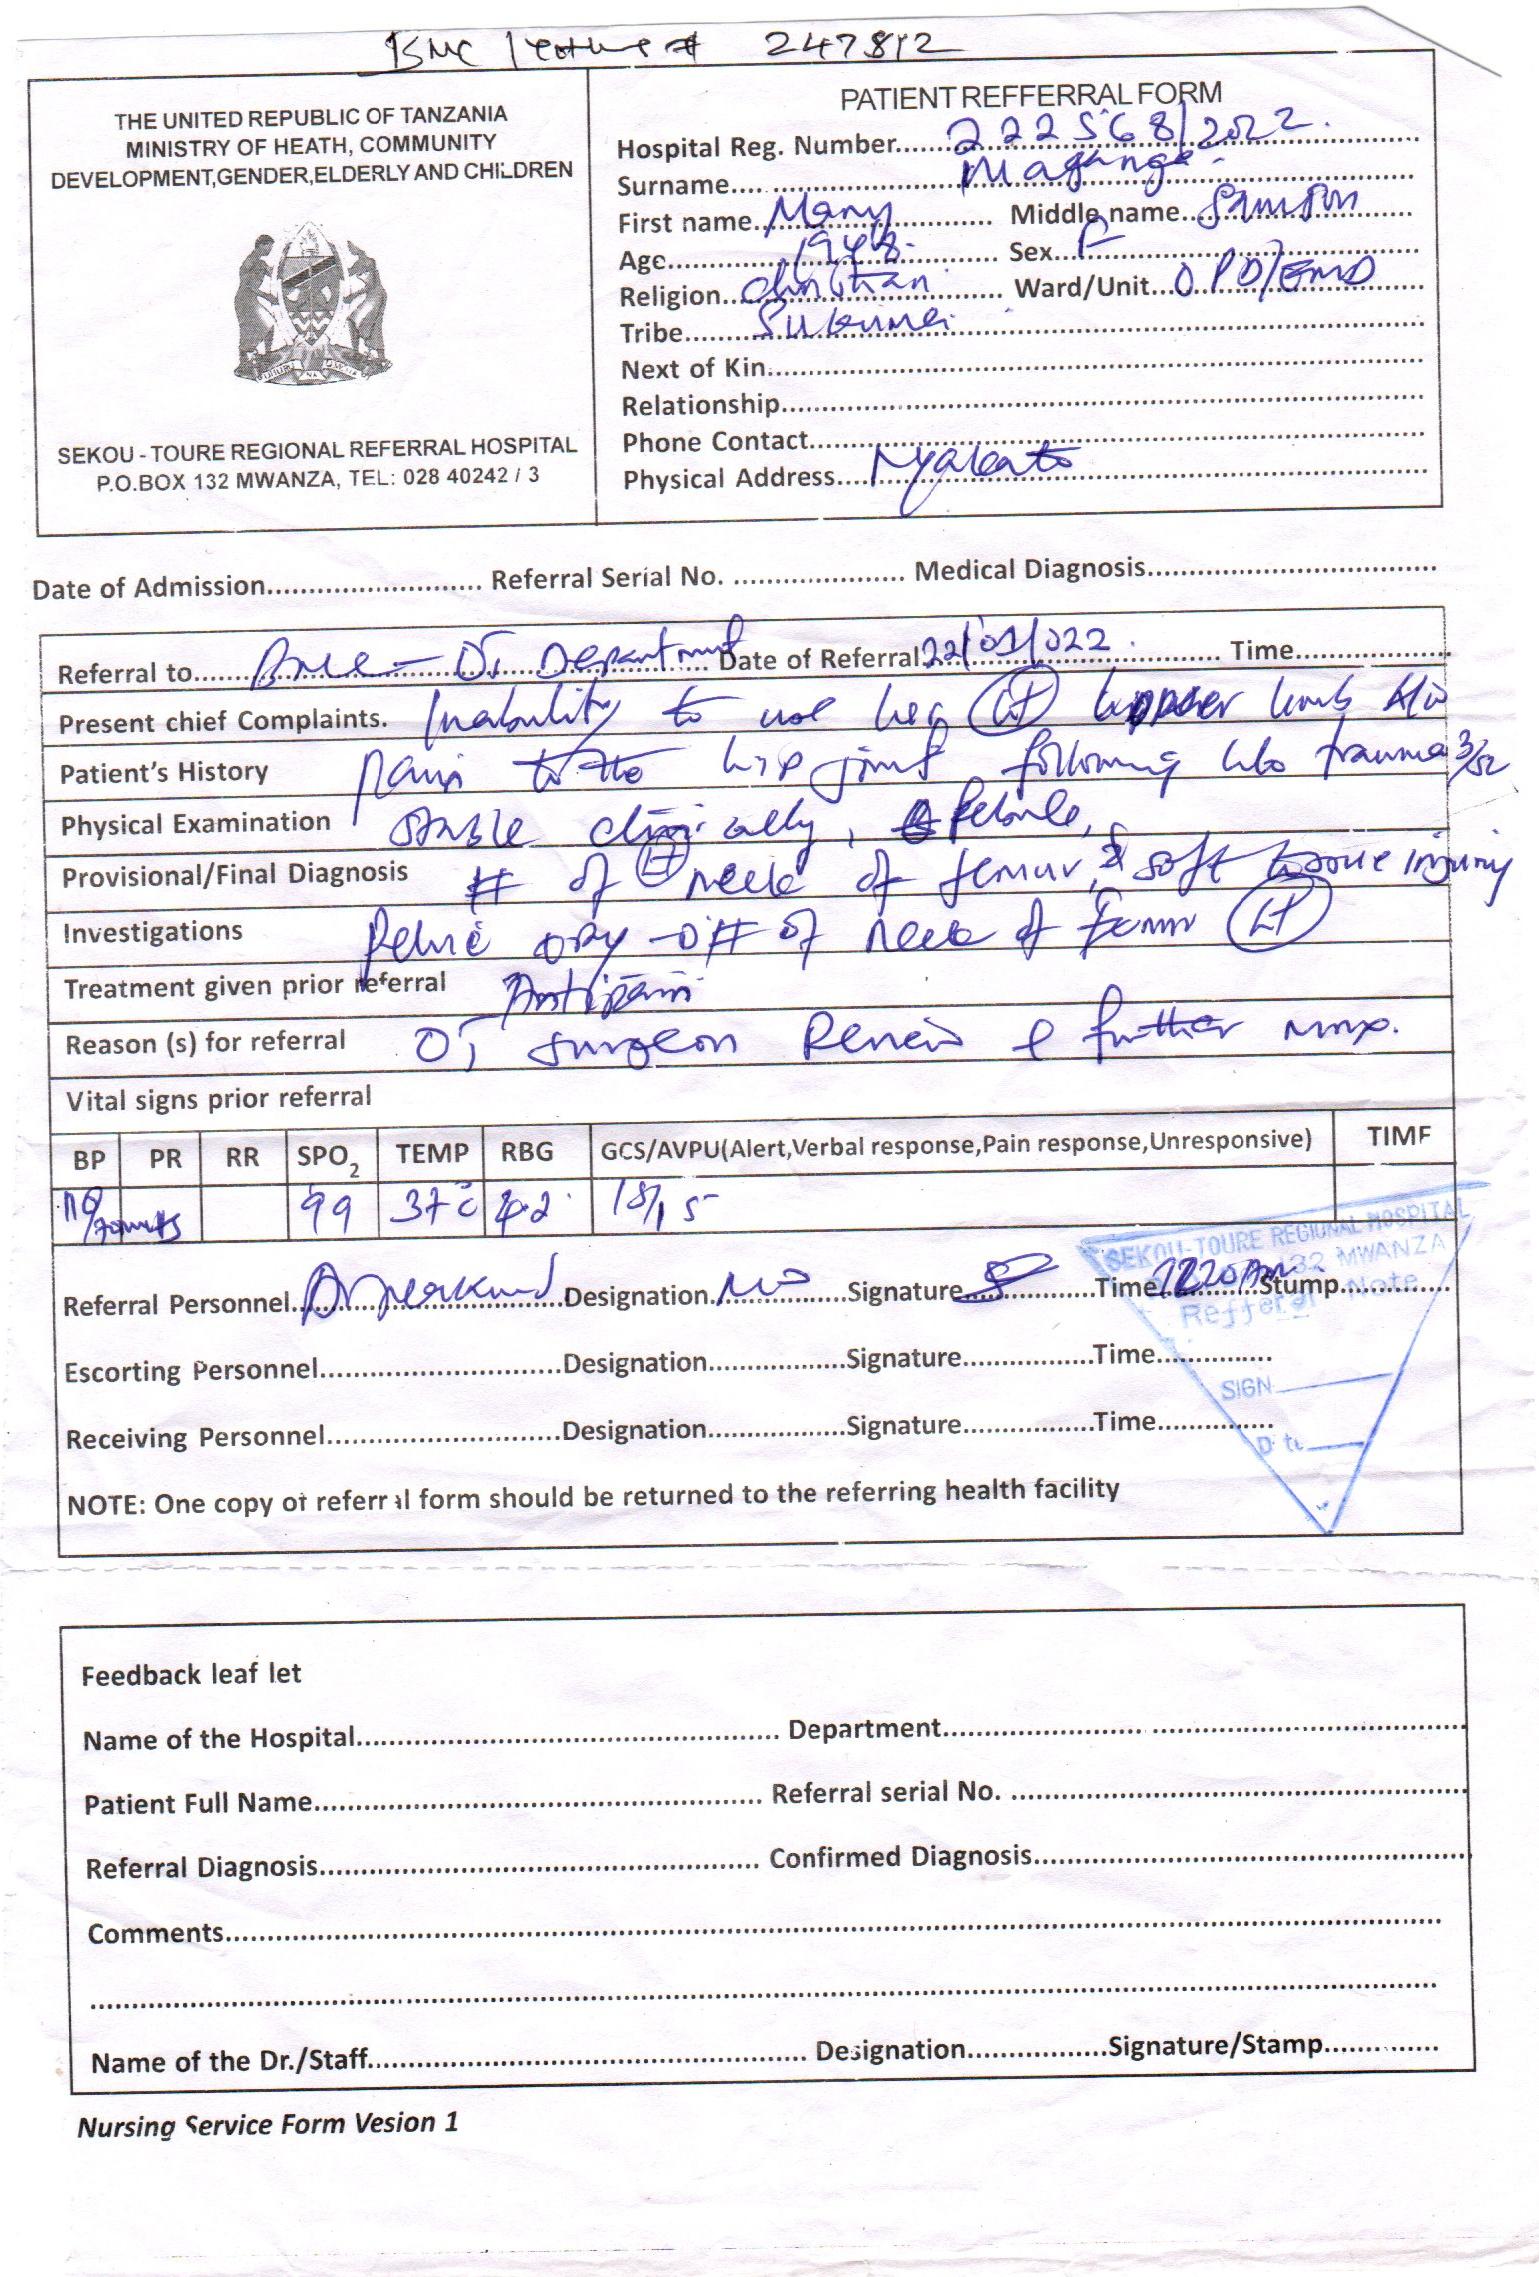 BMC 247812
THE UNITED REPUBLIC OF TANZANIA
MINISTRY OF HEATH, COMMUNITY
DEVELOPMENT,GENDER,ELDERLY AND CHILDREN
SEKOU - TOURE REGIONAL REFERRAL HOSPITAL
P.O.BOX 132 MWANZA, TEL: 028 40242 / 3
PATIENT REFFERRAL FORM
Hospital Reg. Number......222568/2022.
Surname.... Maganga
First name..Mary Middle name..Samson
Age.... Sex..F
Religion..Christian Ward/Unit..OPD/EMD
Tribe....Sukuma
Next of Kin....
Relationship....
Phone Contact....
Physical Address....Nyakato
Date of Admission.... Referral Serial No. .... Medical Diagnosis....
Referral to.... Department Date of Referral 22/01/022. Time....
Present chief Complaints. Inability to use her (Lt) limb
Patient's History pain to the hip joint following h/o trauma 3/52
Physical Examination stable clinically,
Provisional/Final Diagnosis # of (Lt) neck of femur, & soft tissue injury
Investigations Pelvic of neck of femur (Lt)
Treatment given prior referral Antipain
Reason (s) for referral surgeon Review & further mx.
Vital signs prior referral
BP PR RR SPO2 TEMP RBG GCS/AVPU(Alert,Verbal response,Pain response,Unresponsive) TIME
99 37°c 4.2
Referral Personnel.... Designation.. Signature.... Time.... Stump....
SEKOU-TOURE REGIONAL HOSPITAL
132 MWANZA
Refferal Note
SIGN
Escorting Personnel.... Designation.... Signature.... Time....
Receiving Personnel.... Designation.... Signature.... Time....
NOTE: One copy of referral form should be returned to the referring health facility
Feedback leaf let
Name of the Hospital.... Department....
Patient Full Name.... Referral serial No. ....
Referral Diagnosis.... Confirmed Diagnosis....
Comments....
Name of the Dr./Staff.... Designation.... Signature/Stamp....
Nursing Service Form Vesion 1